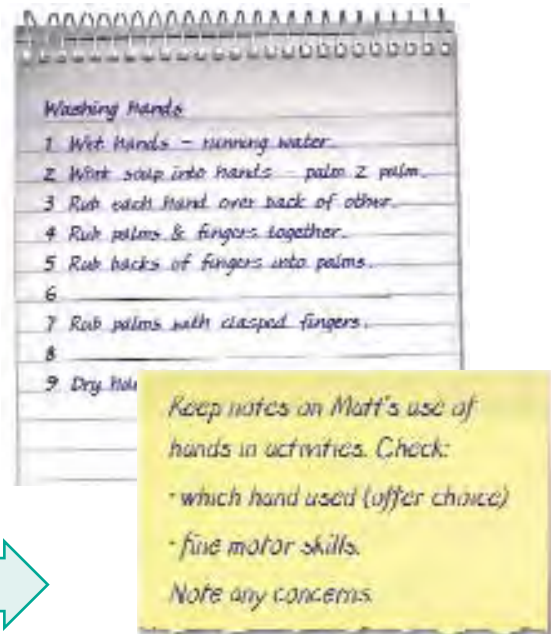 Washing Hands
1 Wet hands – running water.
2 Work soap into hands – palm 2 palm.
3 Rub each hand over back of other.
4 Rub palms & fingers together.
5 Rub backs of fingers into palms.
6
7 Rub palms with clasped fingers.
8
9 Dry
Keep notes on Matt's use of
hands in activities. Check:
· which hand used (offer choice)
· fine motor skills.
Note any concerns.